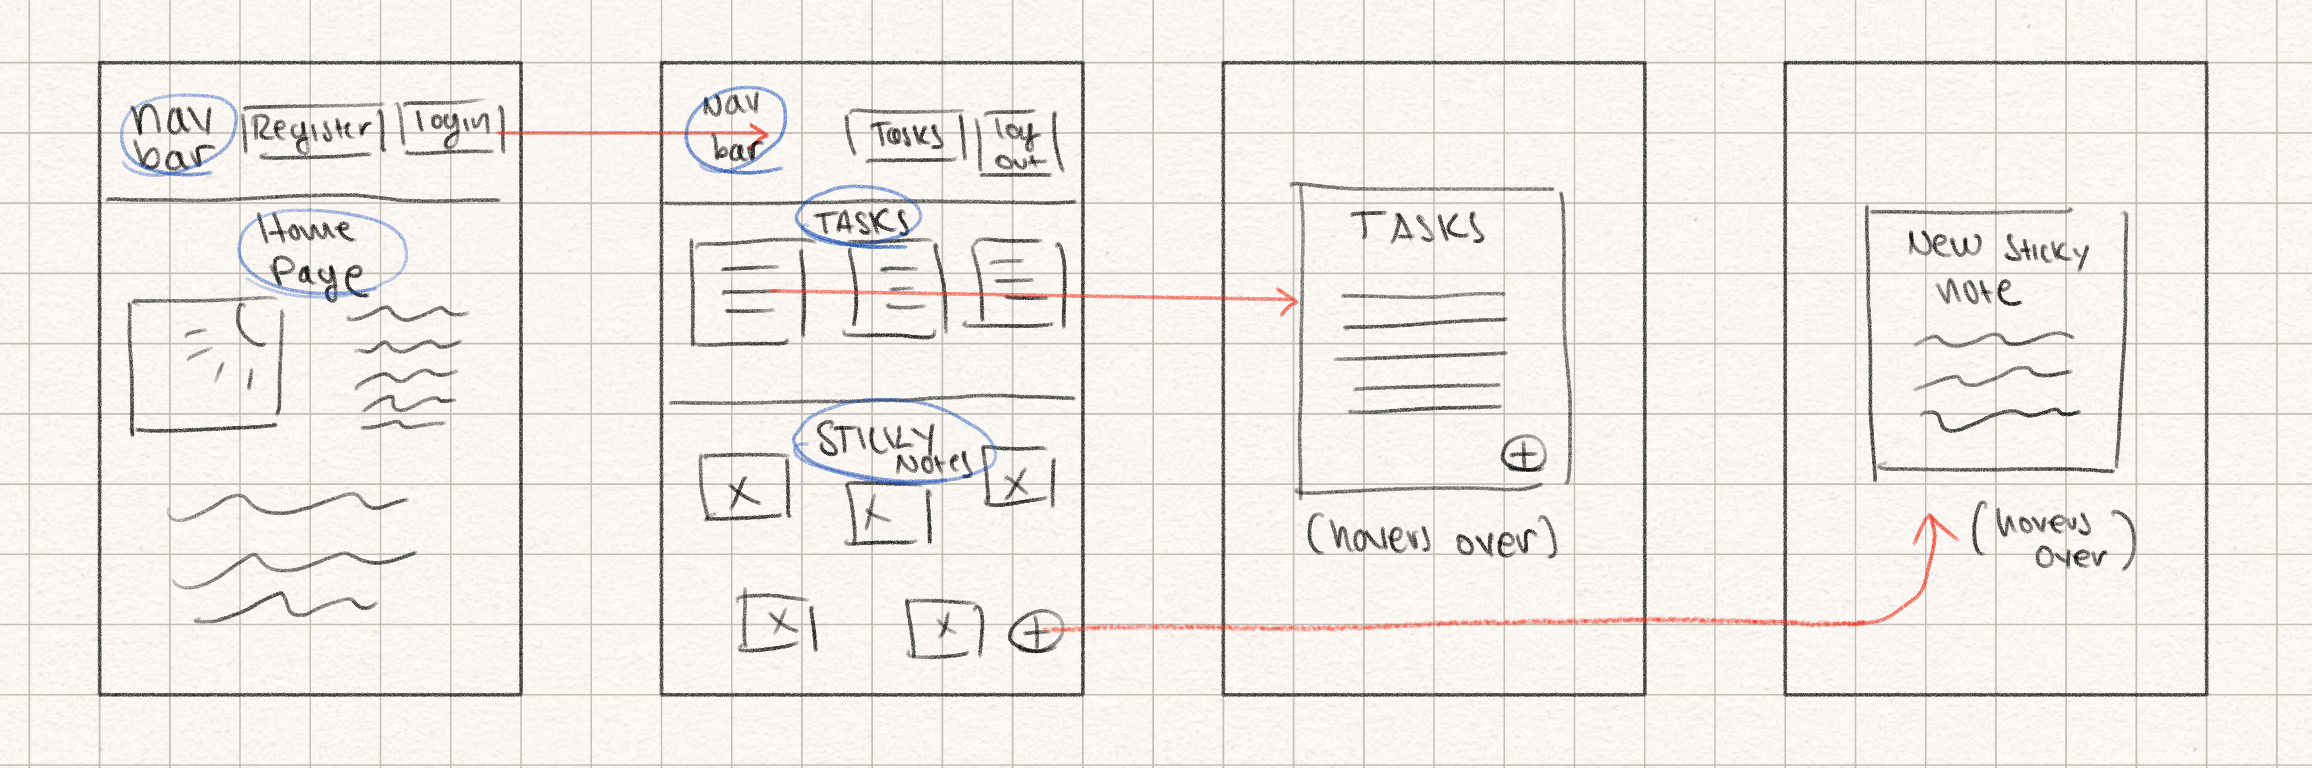 Nav
bar
Register
login
Home
Page
Nav
bar
Tasks
log
out
TASKS
STICKY
Notes
X
X
X
X
X
TASKS
(hovers over)
New Sticky
note
(hovers
over)